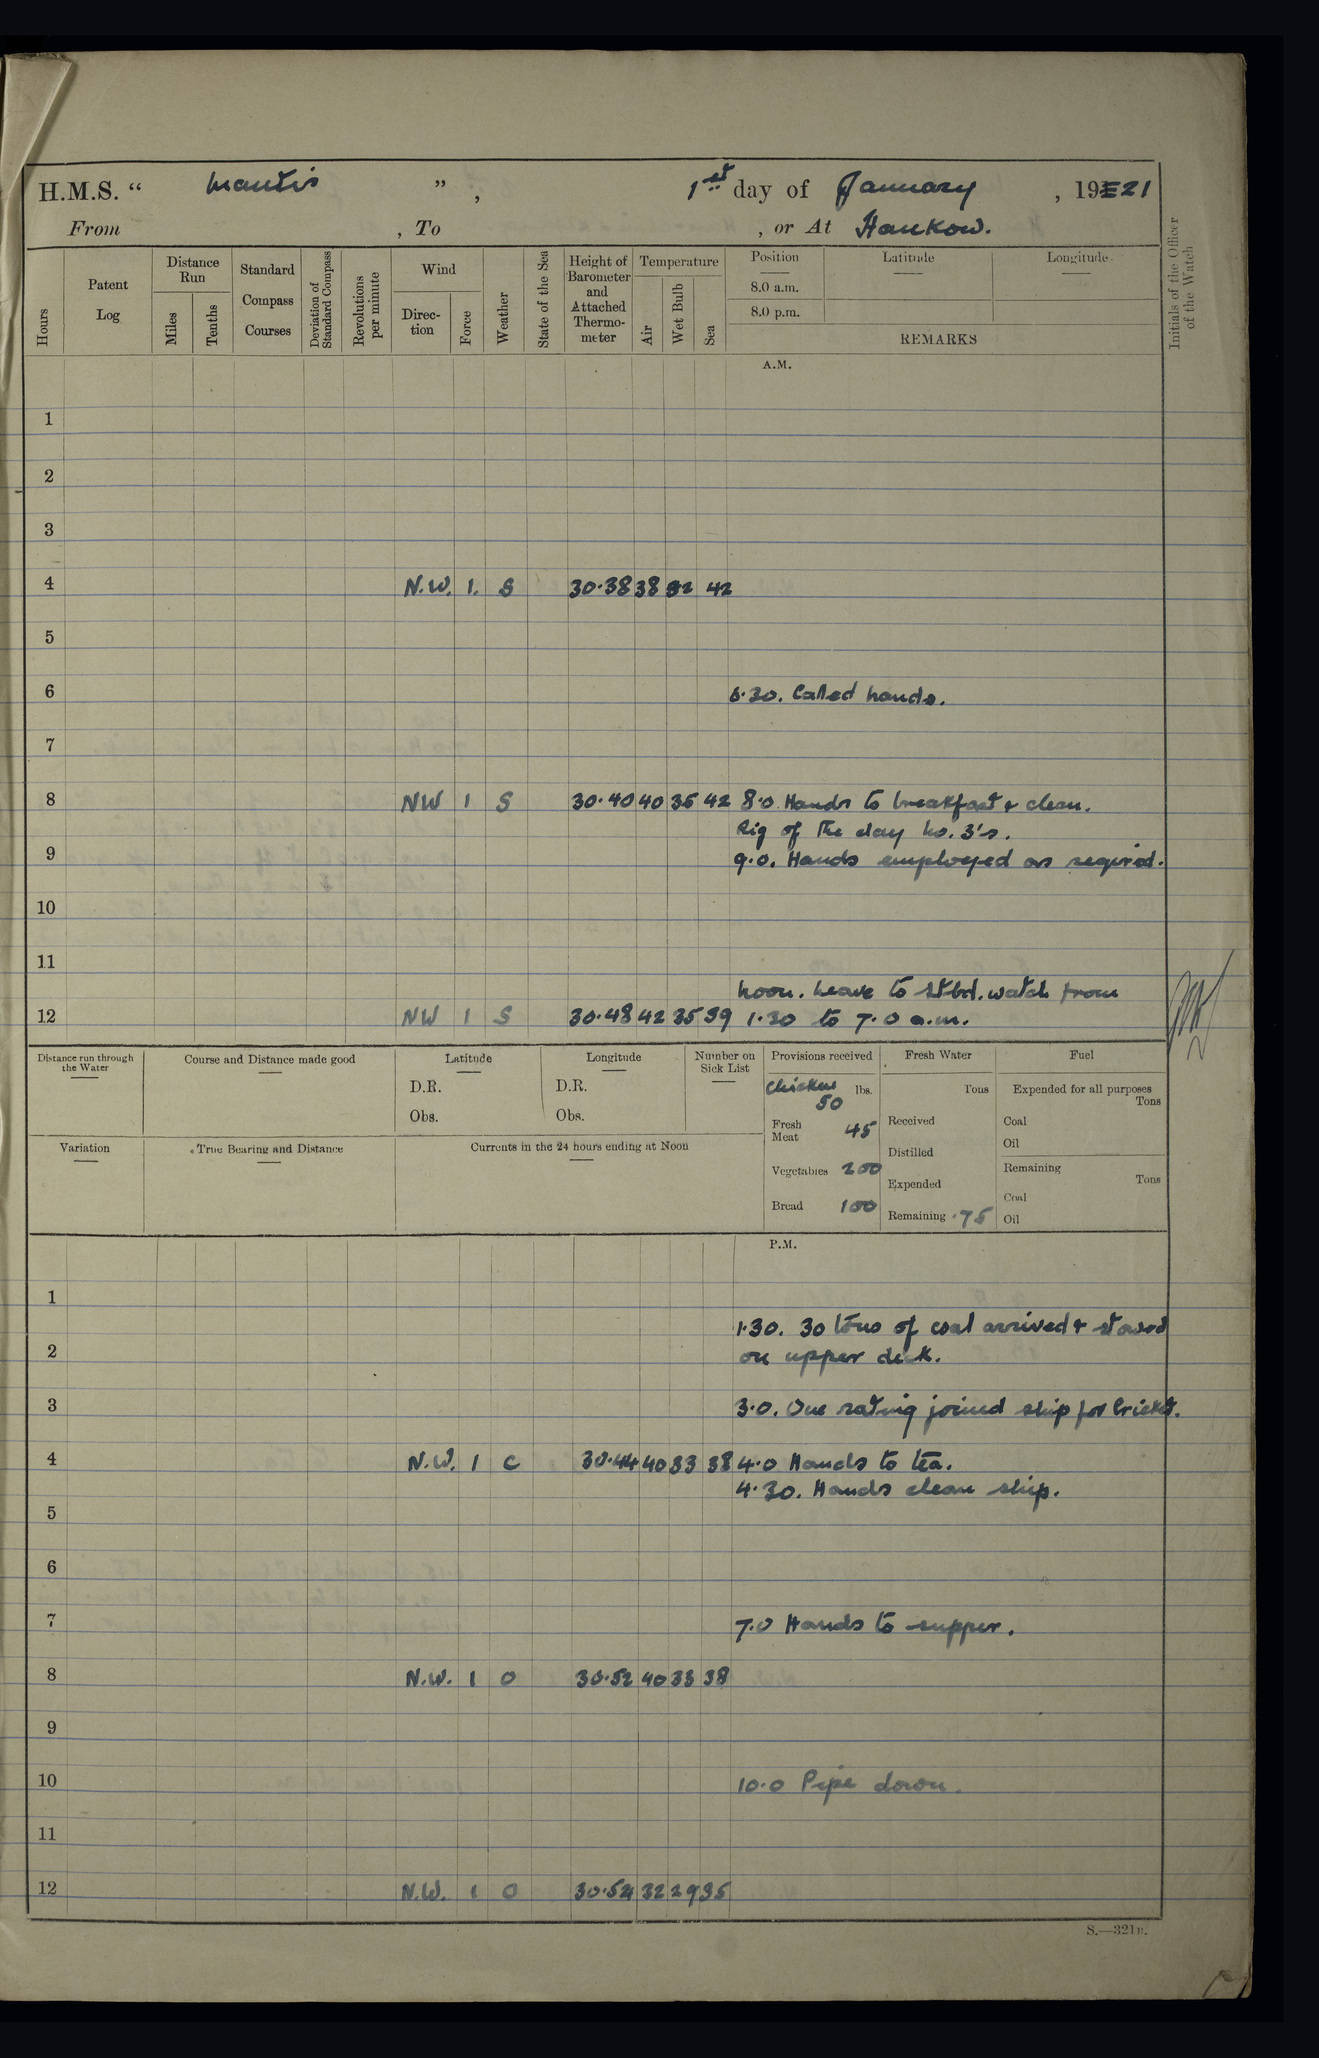 H.M.S. “ Mantis ”, 1st day of January, 1921
From , To , or At Hankow.
Hours
Patent Log
Distance Run
Miles
Tenths
Standard Compass Courses
Deviation of Standard Compass
Revolutions per minute
Wind
Direction
Force
Weather
State of the Sea
Height of Barometer and Attached Thermometer
Temperature
Air
Wet Bulb
Sea
Position
8.0 a.m.
8.0 p.m.
Latitude
Longitude
REMARKS
Initials of the Officer of the Watch
A.M.
1
2
3
4 N.W. 1. S 30.38 38 32 42
5
6 6.30. Called hands.
7
8 NW 1 S 30.40 40 35 42 8.0 Hands to breakfast & clean.
Rig of the day No. 3's.
9 9.0. Hands employed as requird.
10
11
Noon. Leave to stbd. watch from
12 NW 1 S 30.48 42 35 39 1.30 to 7.0 a.m.
Distance run through the Water
Course and Distance made good
Latitude
D.R.
Obs.
Longitude
D.R.
Obs.
Number on Sick List
Provisions received
Chicken lbs.
50
Fresh Meat 45
Vegetables 200
Bread 100
Fresh Water
Tons
Received
Distilled
Expended
Remaining .75
Fuel
Expended for all purposes
Tons
Coal
Oil
Remaining
Tons
Coal
Oil
Variation
True Bearing and Distance
Currents in the 24 hours ending at Noon
P.M.
1
1.30. 30 tons of coal arrived & stowed
2 on upper deck.
3 3.0. One rating joined ship for Cricket.
4 N.W. 1 C 30.44 40 33 38 4.0 Hands to tea.
4.30. Hands clean ship.
5
6
7 7.0 Hands to supper.
8 N.W. 1 O 30.52 40 33 38
9
10 10.0 Pipe down.
11
12 N.W. 1 O 30.54 32 29 35
S.—321B.